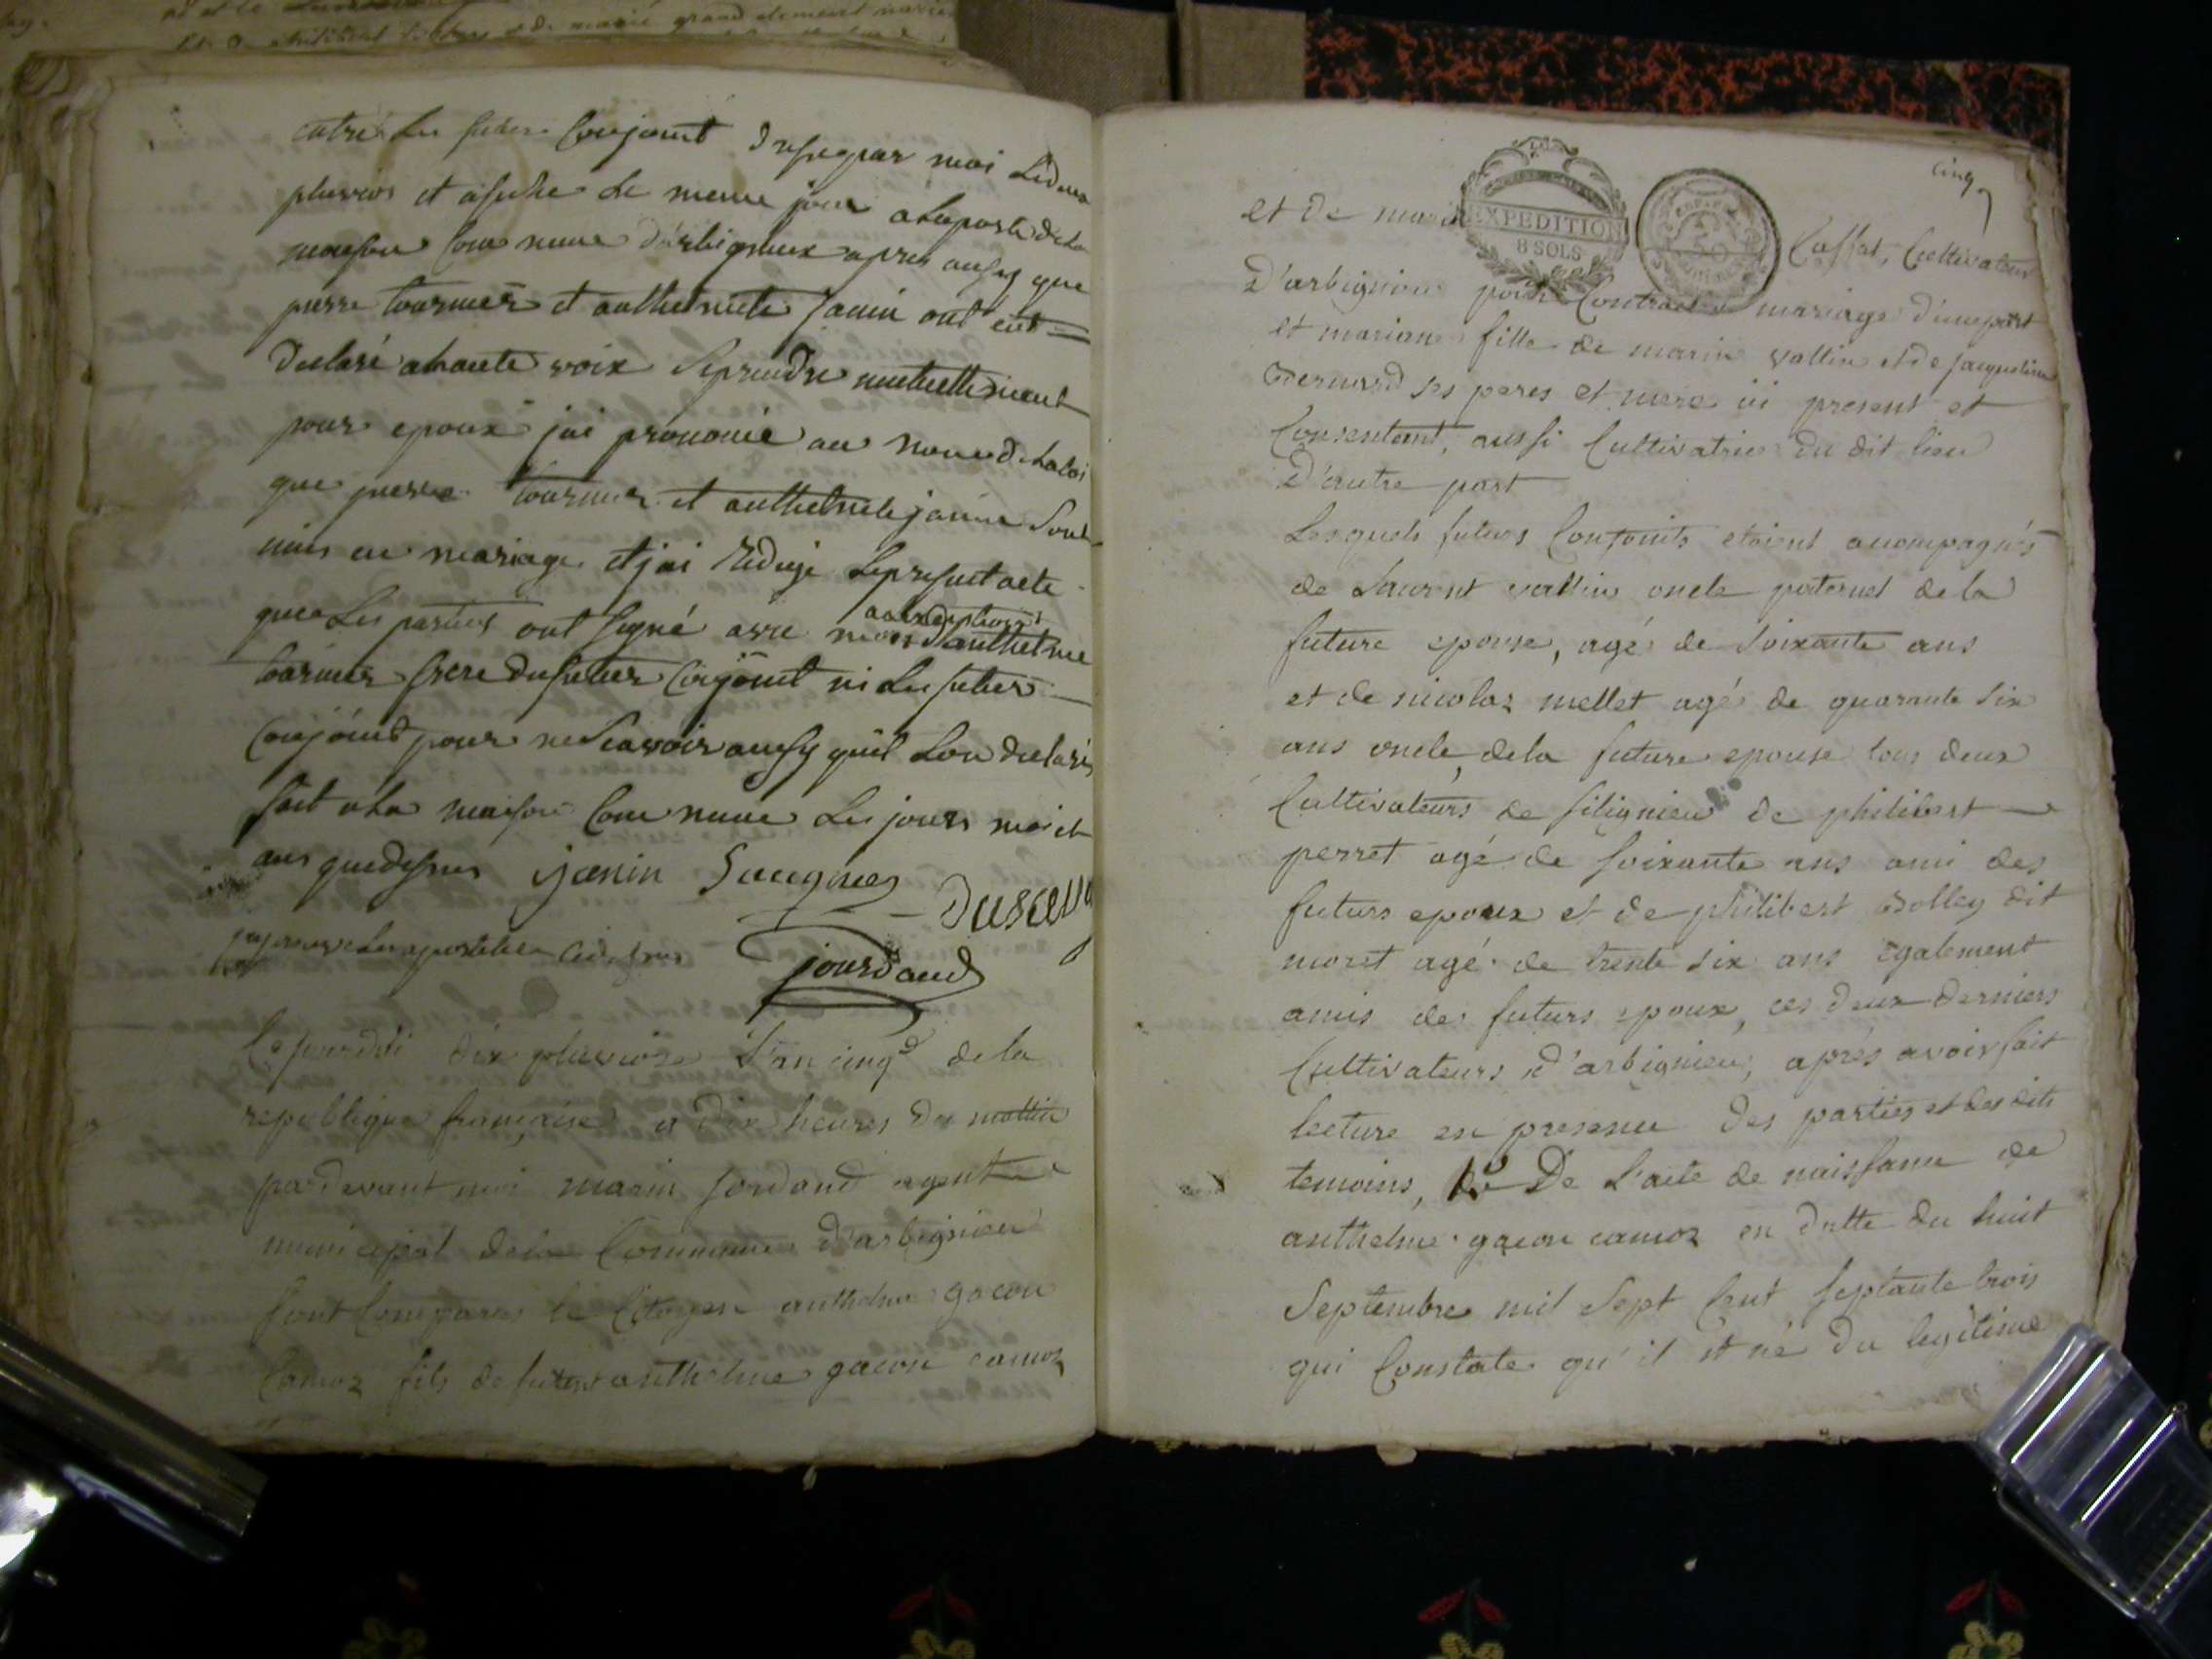 entre les futur Conjoint dressé par moi le deux
pluvios et afiché le meme jour a la porte de la
maison Commune d'arbignieux apres aussy que
pierre tournier et anthelmete janin ont eut
declaré a haute voix se prendre mutuellement
pour epoux jai prononcé au nom de la loi
que pierre tournier et anthelmete janin sont
unis en mariage et jai redigé le present acte
que les parties ont signé avec moi d'anthelme
tournier frere du futur Conjoint ni les futur
Conjoint pour ne scavoir ausy qu'il lon declaré
fait a la maison Commune les jours mois et
ans que dessus janin
jourdand
Le jourdui dix pluviose L'an cinq de la
republique française a dix heures du mattin
pardevant moi marin jordand agent
municipal dela Commune d'arbignieu
sont Comparus le Citoyen anthelme gacon
Camoz fils de anthelme gacon camoz
cinq
et de marie
EXPEDITION
8 SOLS
Cultivateur
D'arbignieu pour Contracter mariage d'une part
et mariane fille de marin vallin et de jacqueline
Bernard ses peres et mere ici present et
Consentant, aussi Cultivatrice du dit lieu
D'autre part
Lesquels futurs Conjoints etoient acompagnés
de Laurent vallin oncle paternel de la
future epouse, agé de soixante ans
et de nicolaz mellet agé de quarante six
ans oncle dela future epouse tous deux
Cultivateurs de filignieu de philibert
perret agé de soixante ans ami des
futurs epoux et de philibert Bolley dit
moret agé de trente six ans egalement
amis des futurs epoux, ces deux derniers
Cultivateurs d'arbignieu, aprés avoir fait
lecture en presence des parties et des dits
temoins, De L'acte de naissance de
anthelme gacon camoz en datte du huit
Septembre mil Sept Cent Septante trois
qui Constate qu'il est né du legitime